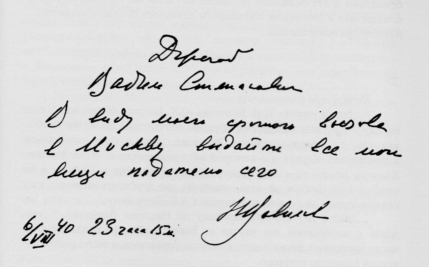 Дорогой
Вадим Степанович
В виду моего срочного вызова
в Москву выдайте все мои
вещи подателю сего
Н Вавилов
6/VIII 40 23 часа 15 м.